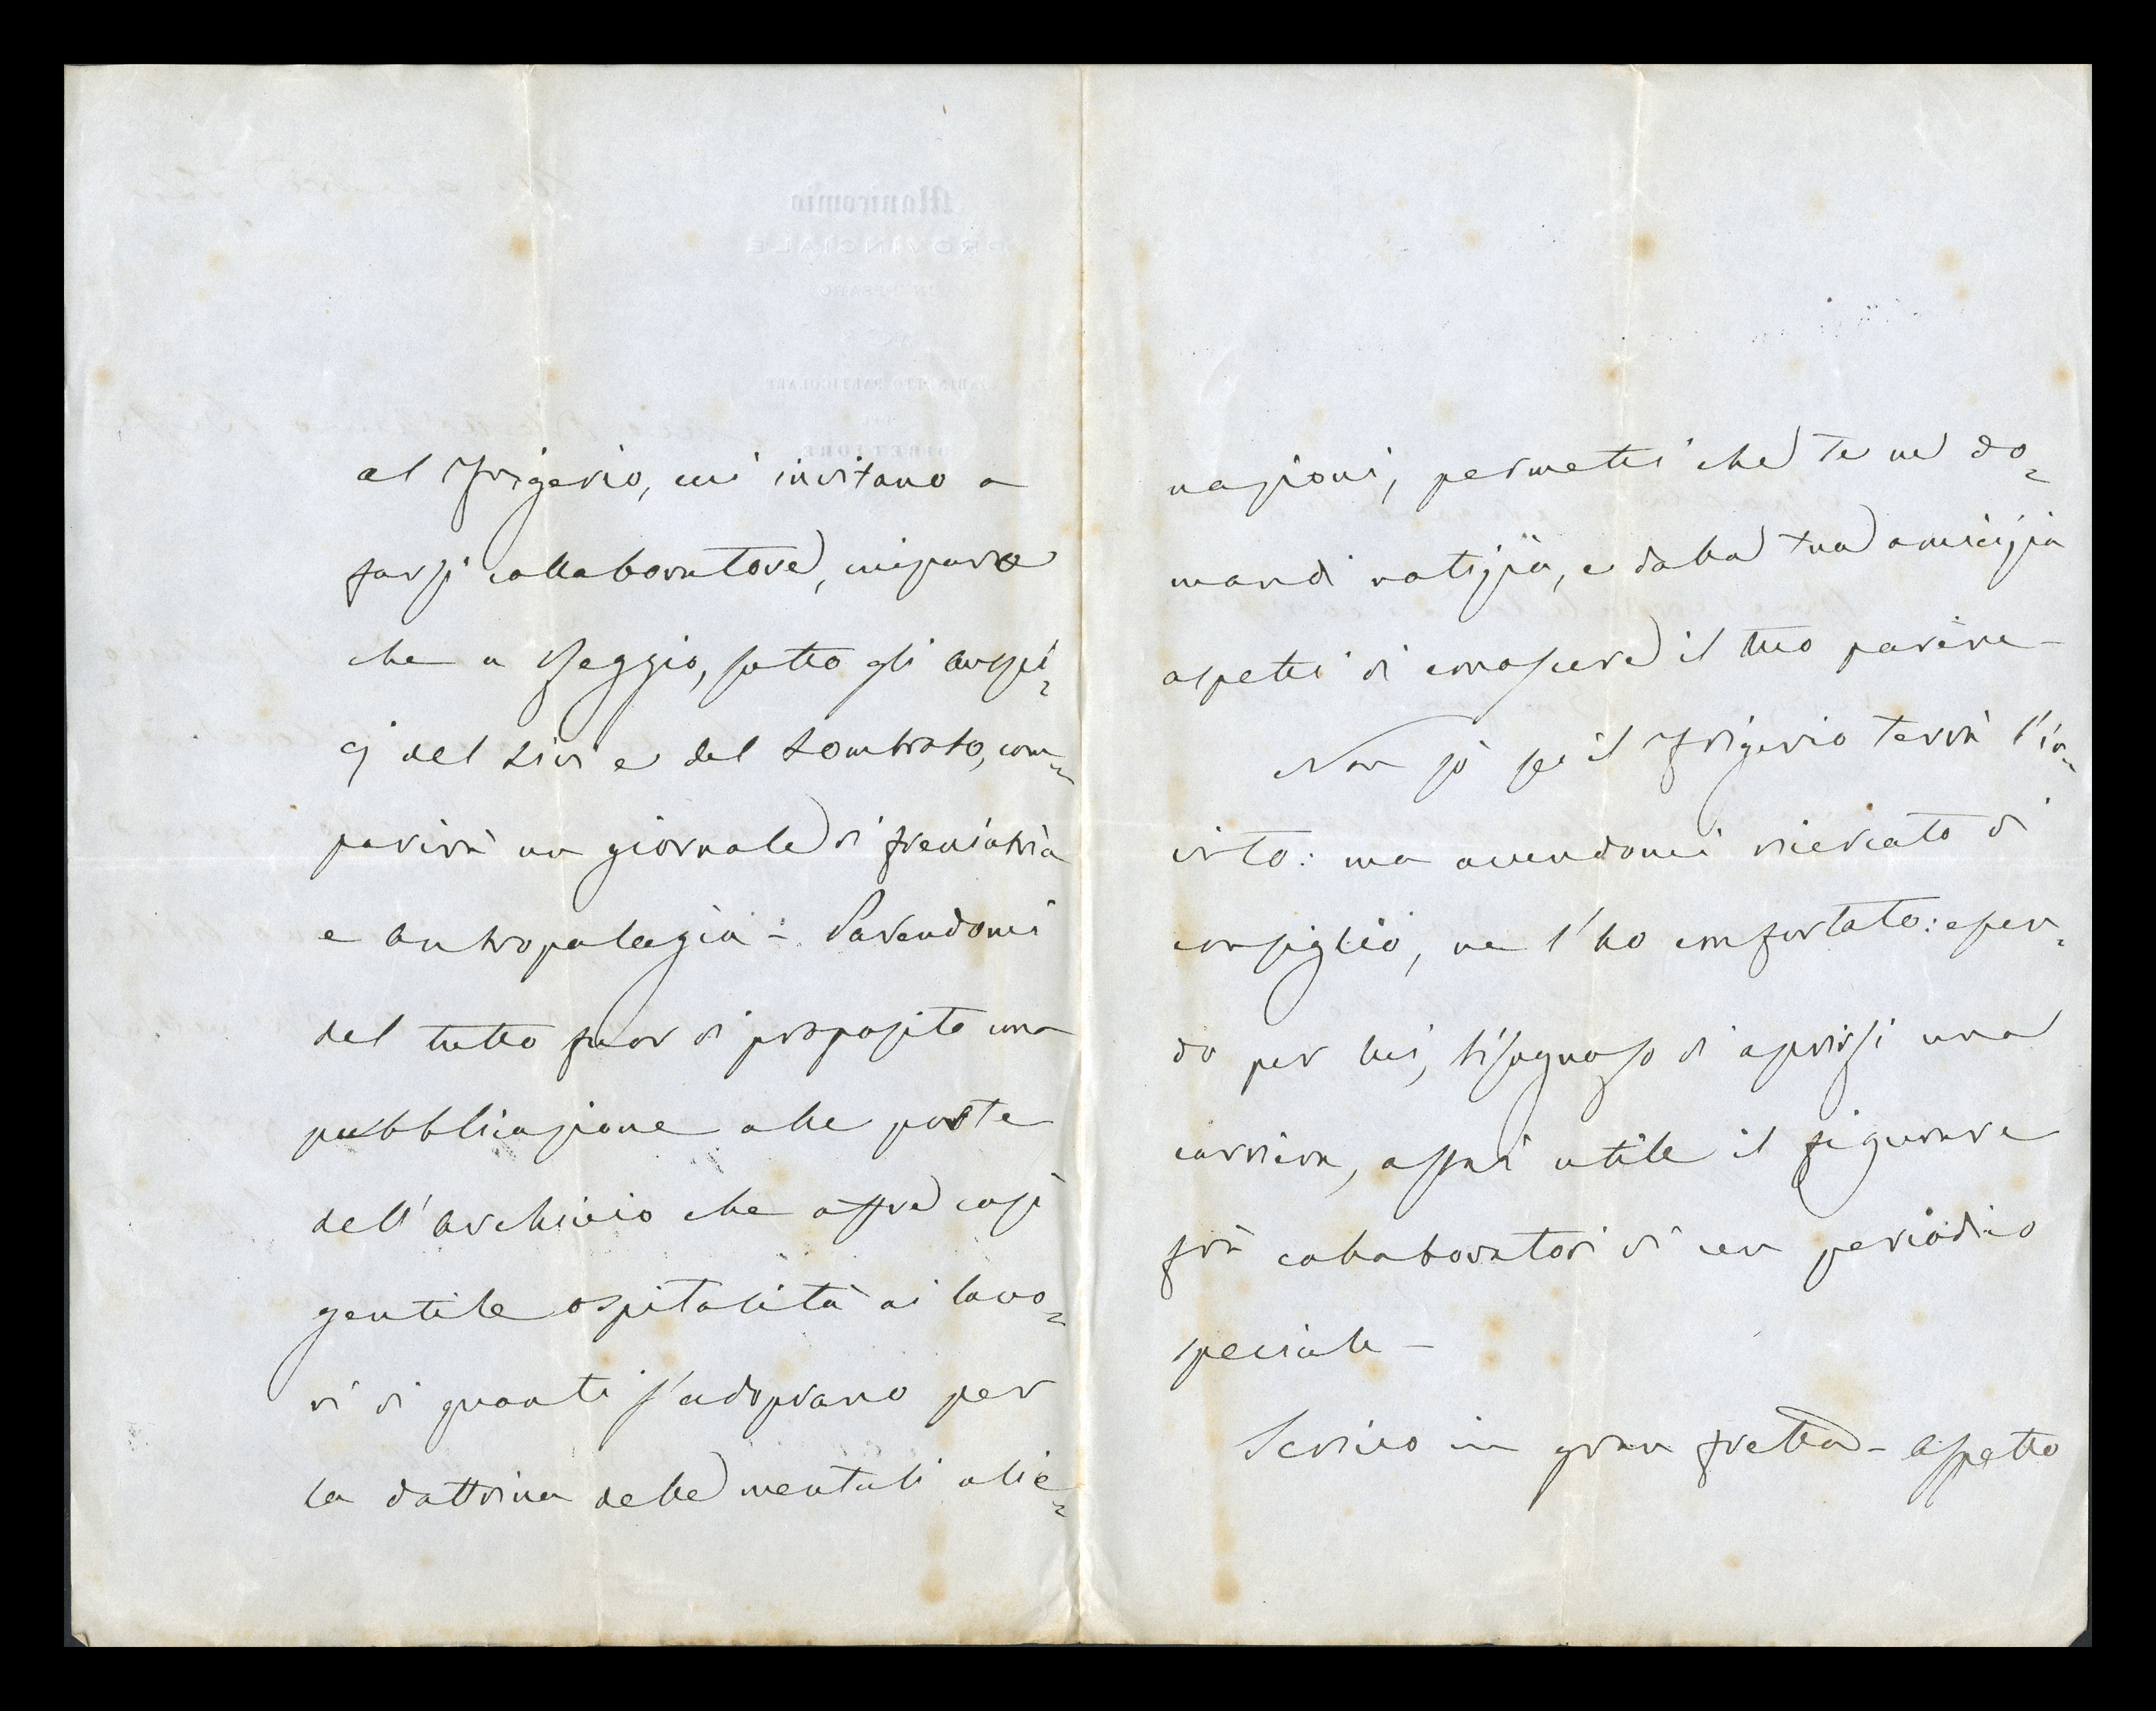 al Frigerio, cui invitano a
farsi collaboratore, mi pare
che a Reggio, sotto gli auspi=
cj del Livi e del Lombroso, com=
parirà un giornale di freniatria
e antropologia – Parendomi
del tutto fuor di proposito una
pubblicazione alle porte
dell'Archivio che offre così
gentile ospitalità ai lavo=
ri di quanti s'adoprano per
la dottrina delle mentali alie=
nazioni, permetti che te ne do=
mandi notizia, e dalla tua amicizia
aspetti di conoscere il tuo parere –
Non so se il Frigerio terrà l'in=
vito: ma avendomi ricercato di
consiglio, ne l'ho confortato: essen=
do per lui, bisognoso di aprirsi una
carriera, assai utile il figurare
fra collaboratori di un periodico
speciale –
Scrivo in gran fretta – Aspetto
Manicomio
PROVINCIALE
IN PESARO
GABINETTO PARTICOLARE
DEL
DIRETTORE